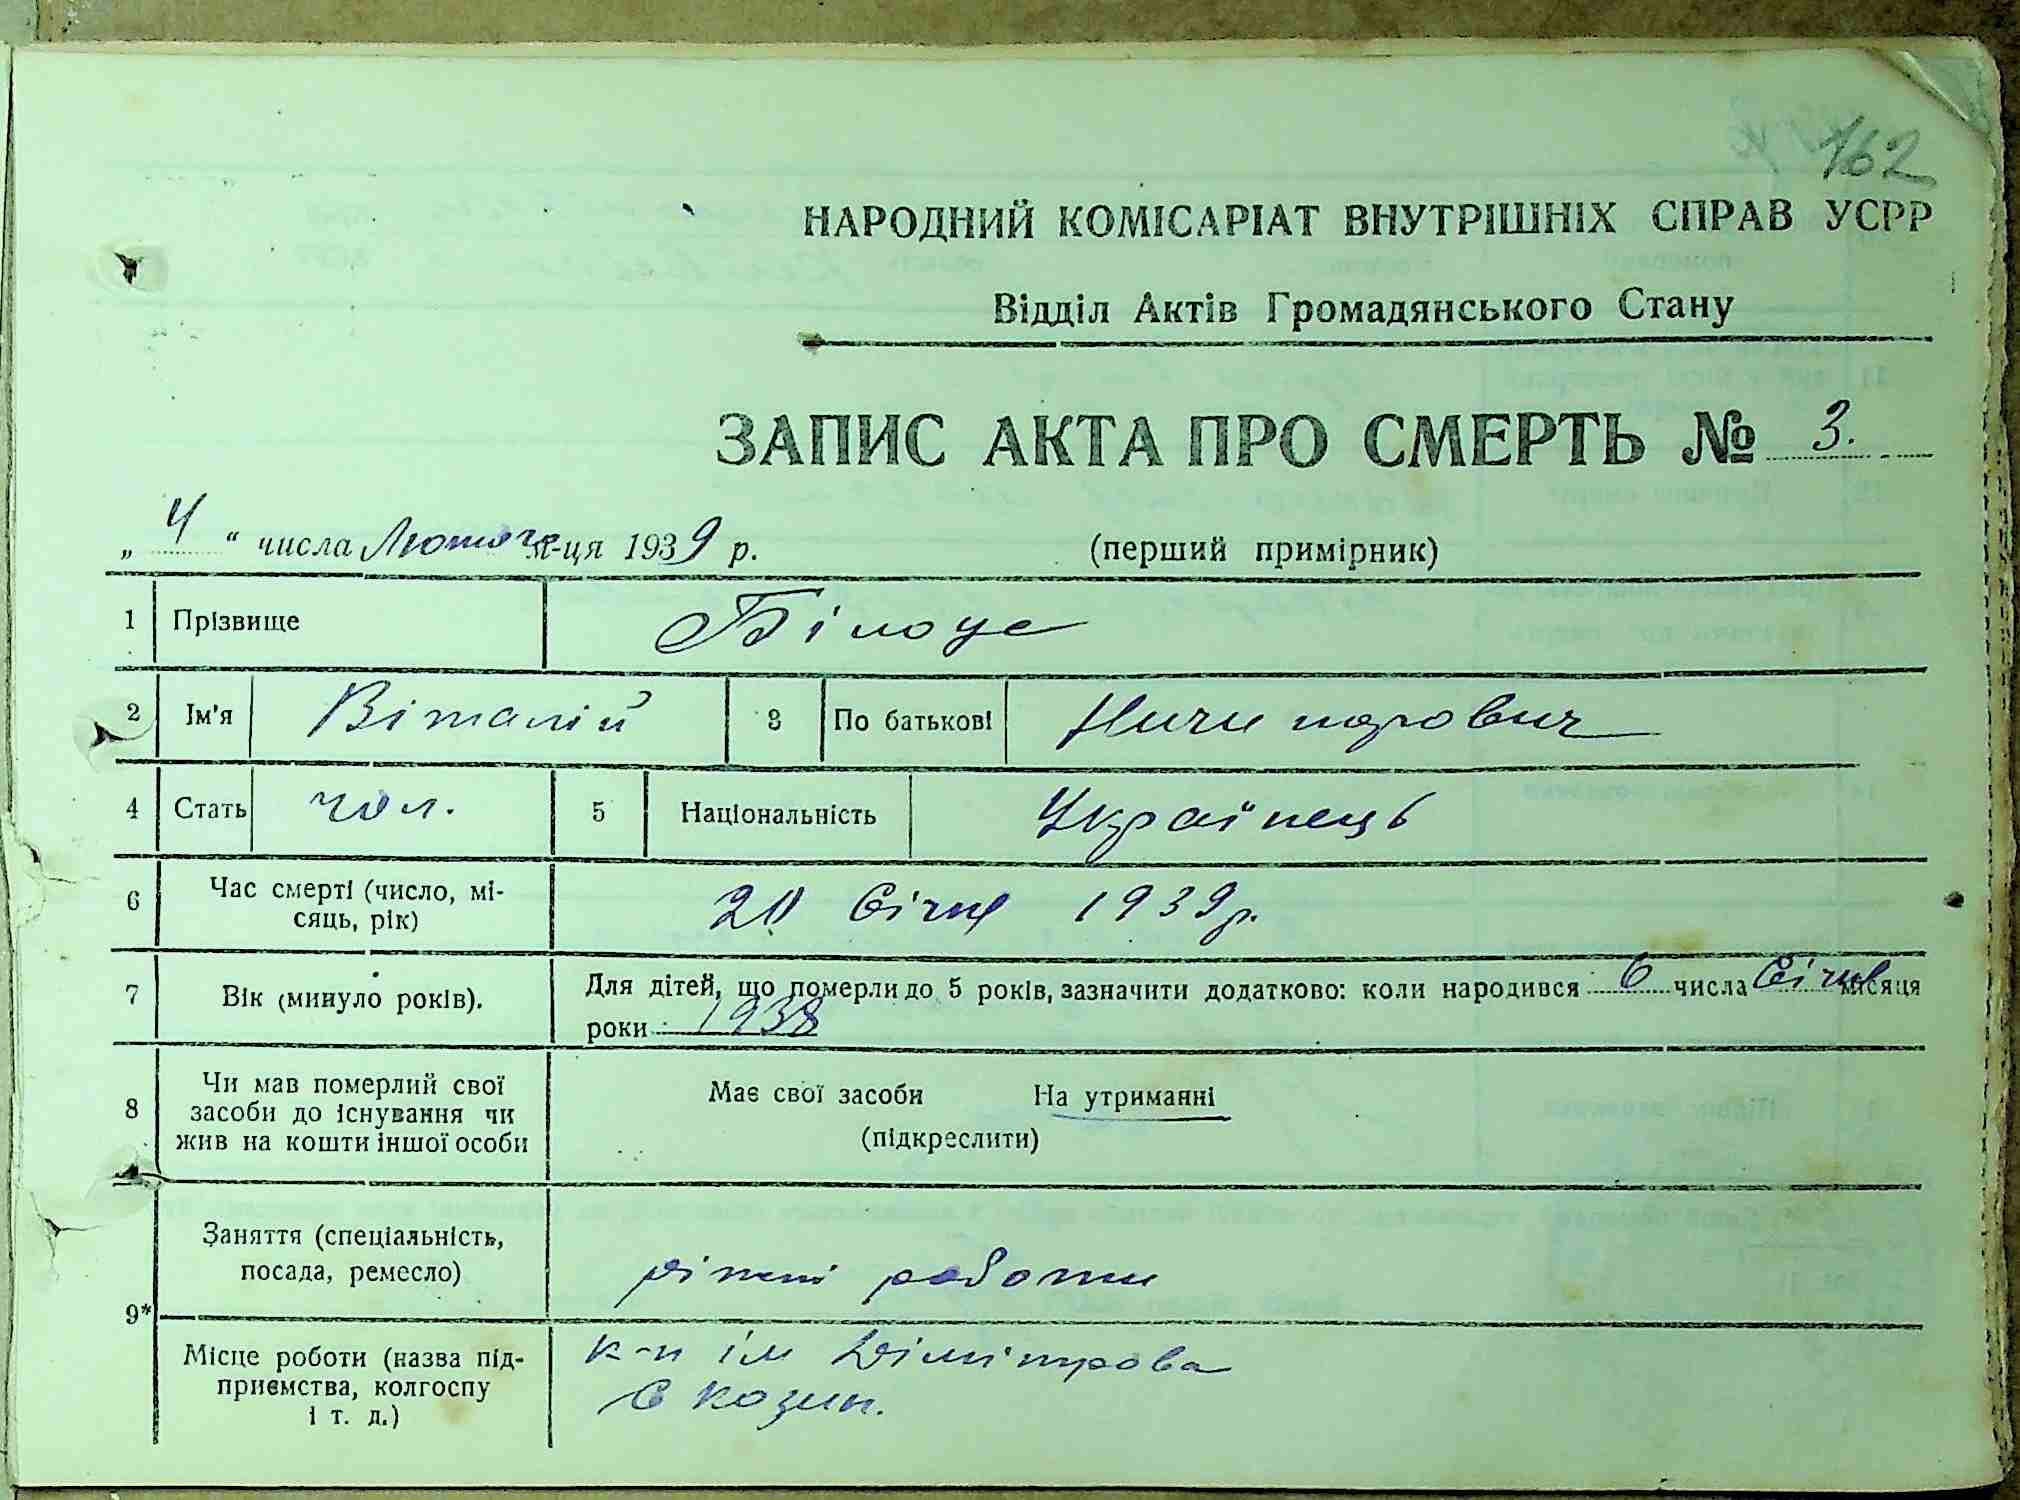 162
НАРОДНИЙ КОМІСАРІАТ ВНУТРІШНІХ СПРАВ УСРР
Відділ Актів Громадянського Стану
ЗАПИС АКТА ПРО СМЕРТЬ № 3.
„ 4 “ числа Лютого м-ця 1939 р. (перший примірник)
1 Прізвище Білоус
2 Ім'я Віталій 3 По батькові Ничипорович
4 Стать чол. 5 Національність Українець
6 Час смерті (число, мі-
сяць, рік) 20 Січня 1939 р.
7 Вік (минуло років). Для дітей, що померли до 5 років, зазначити додатково: коли народився 6 числа Січня місяця
роки 1938
8 Чи мав померлий свої
засоби до існування чи
жив на кошти іншої особи
Має свої засоби На утриманні
(підкреслити)
9* Заняття (спеціальність,
посада, ремесло) різні роботи
Місце роботи (назва під-
приємства, колгоспу
і т. д.)
к-п ім Дімітрова
с Козин.